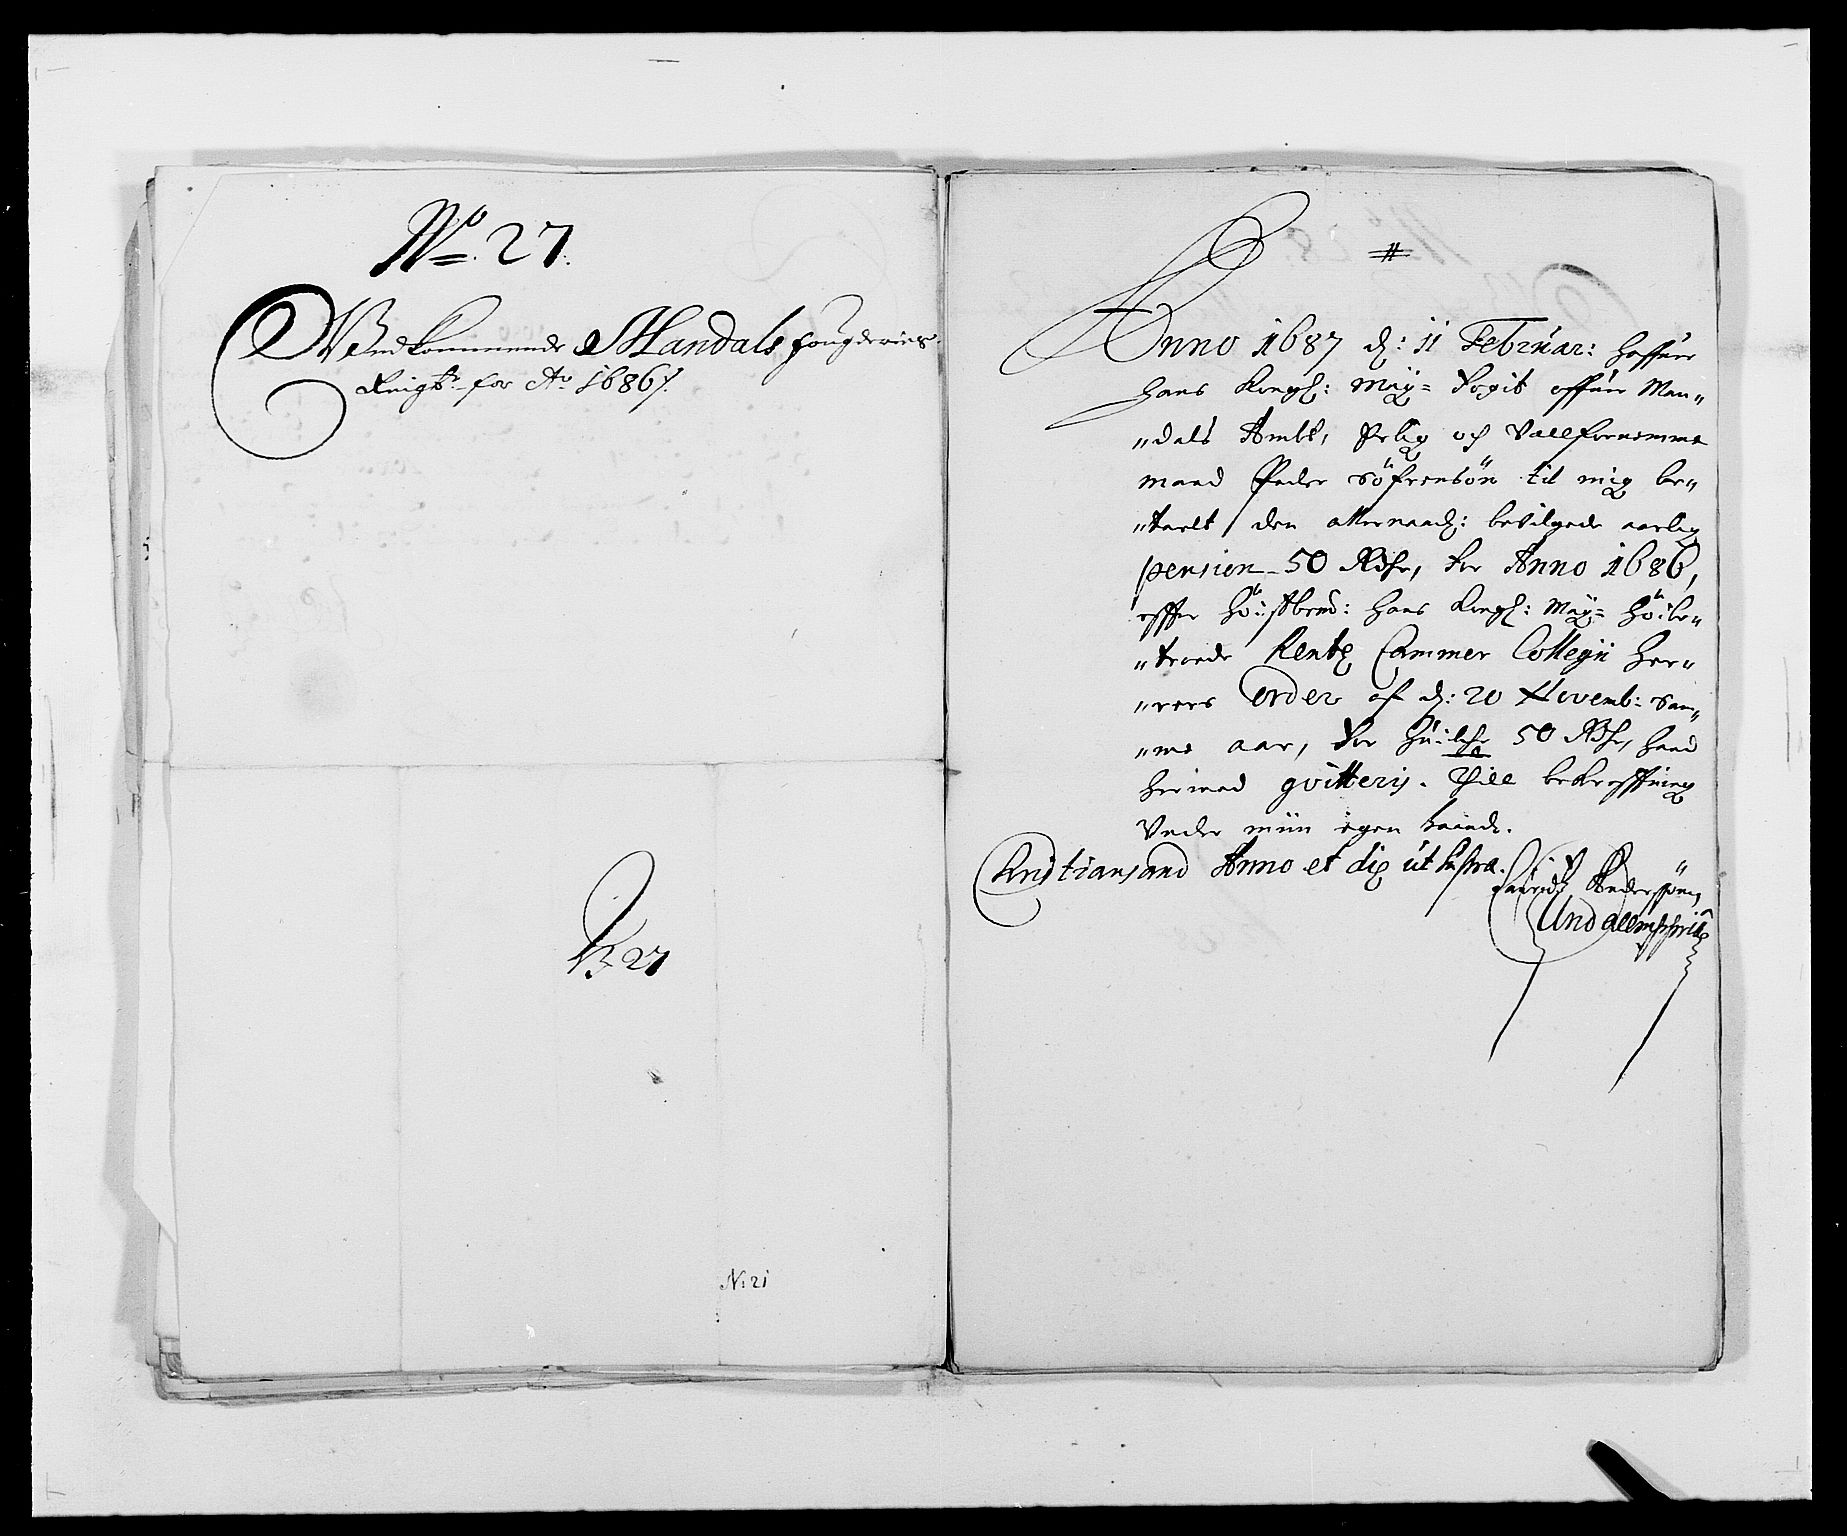 No. 27.
Vedkommende Mandals fougderies
Reigsk: for Ao 1686.
B 27
N: 21
#
Anno 1687 d: 11 Februar: haffuer
hans Kongl: May: Fogit offuer Man„
„dals Ambt, Erlig och Velfornemme
mand Peder Söfrensön til mig be„
„taelt den allernaad: bevilgede aarlig
pension 50 Rdlr, for Anno 1686,
effter höistbemd: hans Kongl: May: höibe„
„troede Rente Cammer Collegii Her„
„rers order af d: 20 Novemb: sam„
„me aar, for huilche 50 Rdlr, hand
hermed qvitteris. Till bekrefftning
Under miin egen haand.
Christiansand Anno et die ut supra.
Laurids Anderssön